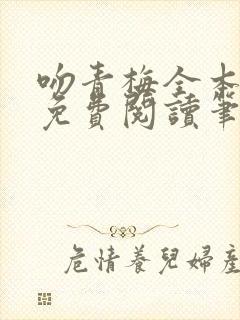 吻青梅全本
免費閱讀筆
危情養兒婦產